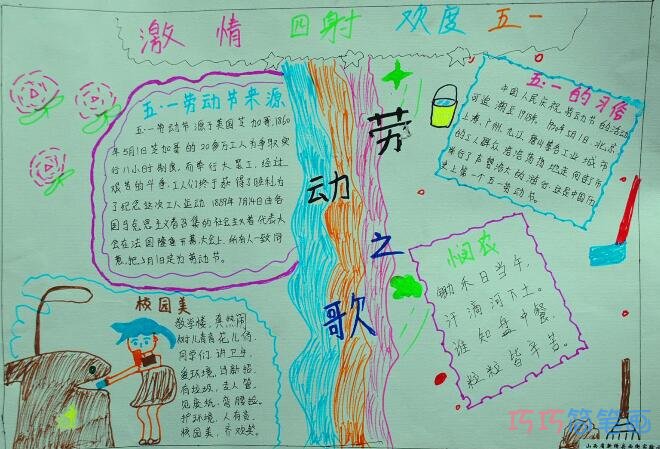 激情四射欢度五一
五·一劳动节来源
五·一劳动节源于美国芝加哥,1860
年5月1日芝加哥的20多万工人为争取实
行八小时制度,而举行大罢工,经过
艰苦的斗争,工人们终于获得了胜利,为
了纪念这次工人运动 1889年7月14日由各
国马克思主义者召集的社会主义者代表大
会在法国隆重开幕,大会上,所有人一致同
意,把5月1日定为劳动节。
校园美
教学楼,真热闹
树儿青青花儿俏.
同学们,讲卫生
爱环境,
有垃圾,主人管.
见废纸,弯腰捡.
护环境,人有责.
校园美,齐欢笑.
劳
动
之
歌
五·一的习俗
中国人民庆祝劳动节的活动
可追溯至1918年.
上海,广州,九江,唐山等各工业城市
的工人群众浩浩荡荡地走向街市
举行了声势浩大的游行
史上第一个五一劳动节.
悯农
锄禾日当午,
汗滴河下土。
谁知盘中餐,
粒粒皆辛苦。
巧巧简笔画